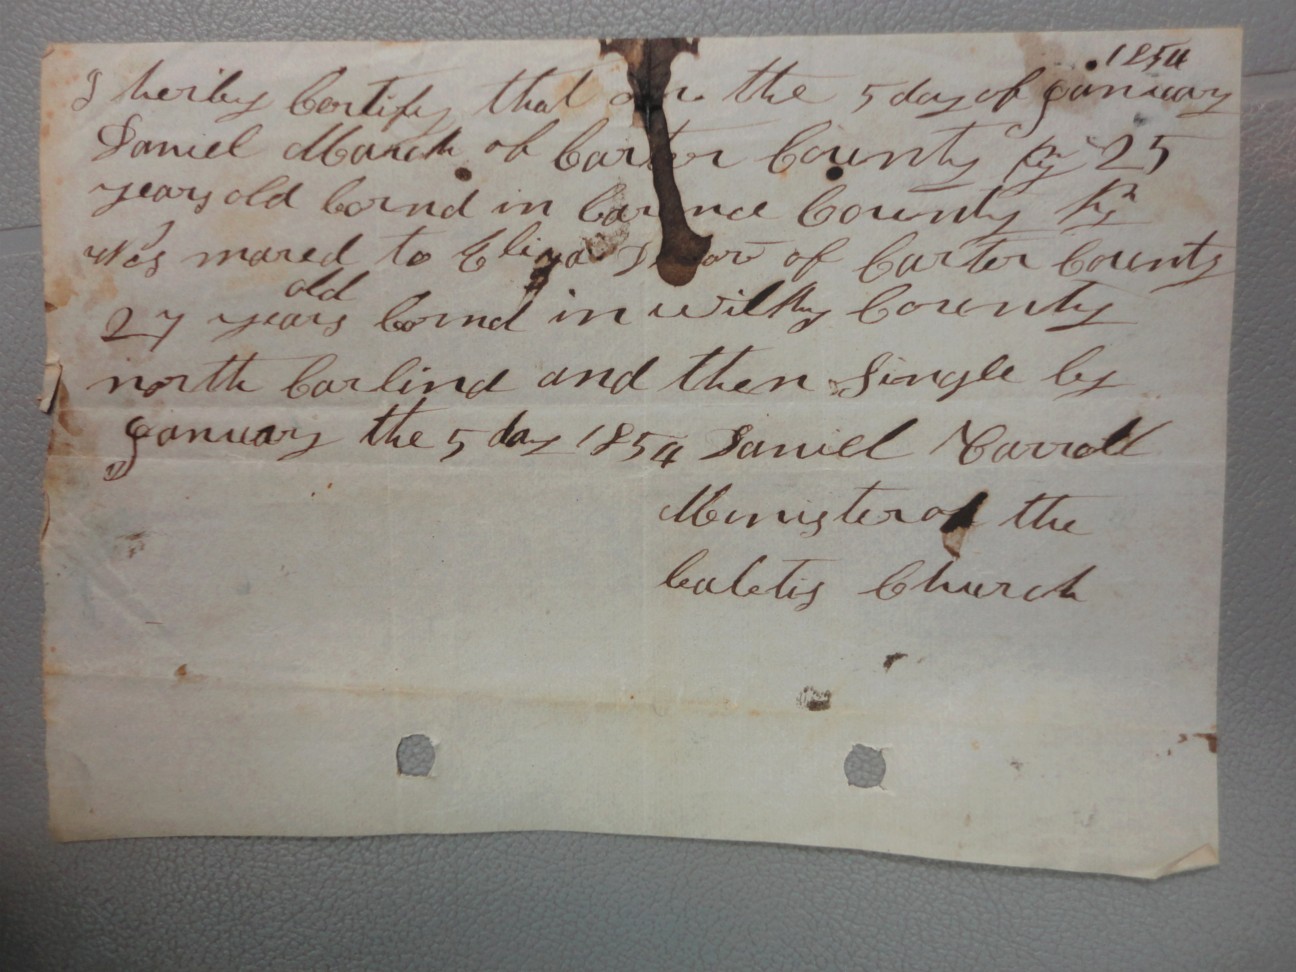 1854
I heriby Certify that on the 5 day of January
Daniel March of Carter County Ky 25
years old bornd in County Ky
Was mared to Eliza of Carter County
old
27 years bornd in Wilky County
north Carlind and then Single by
January the 5 day 1854 Daniel Carroll
Menister of the
Church